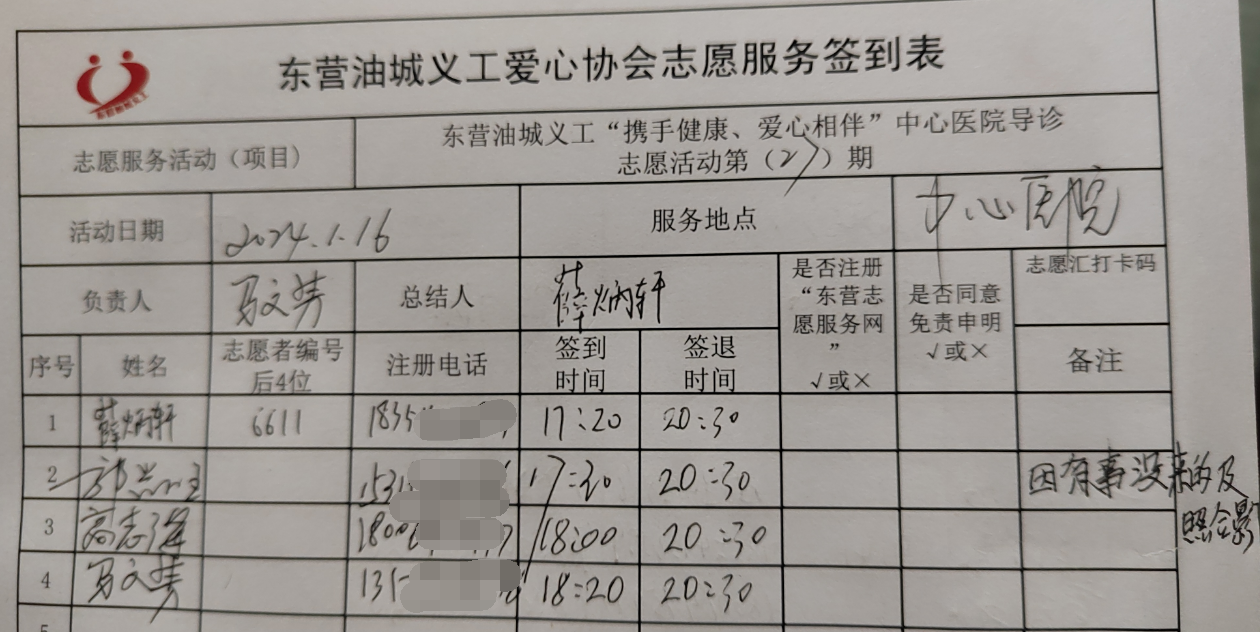 东营油城义工爱心协会志愿服务签到表
志愿服务活动（项目）
东营油城义工“携手健康、爱心相伴”中心医院导诊
志愿活动第（27）期
活动日期 2024.1.16 服务地点 中心医院
负责人 马文秀 总结人 薛炳轩
是否注册
“东营志
愿服务网
”
√或×
是否同意
免责申明
√或×
志愿汇打卡码
备注
序号 姓名
志愿者编号
后4位
注册电话
签到
时间
签退
时间
1 薛炳轩 6611 1835 17:20 20:30
2 17:30 20:30 因有事没来的及
照合影
3 高志强 180 18:00 20:30
4 马文秀 135 18:20 20:30
5